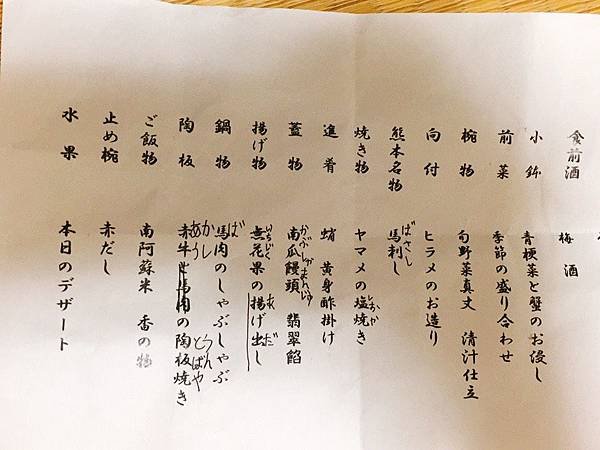 食前酒 梅酒
小鉢 青梗菜と蟹のお浸し
前菜 季節の盛り合わせ
椀物 旬野菜真丈 清汁仕立
向付 ヒラメのお造り
ばさし
熊本名物 馬刺し
焼き物 ヤマメの塩焼き
進肴 蛸 黄身酢掛け
蓋物 南瓜饅頭 翡翠餡
いちじく あ だ
揚げ物 無花果の揚げ出し
ば
鍋物 馬肉のしゃぶしゃぶ
陶板 赤牛と馬肉の陶板焼き
ご飯物 南阿蘇米 香の物
止め椀 赤だし
水果 本日のデザート